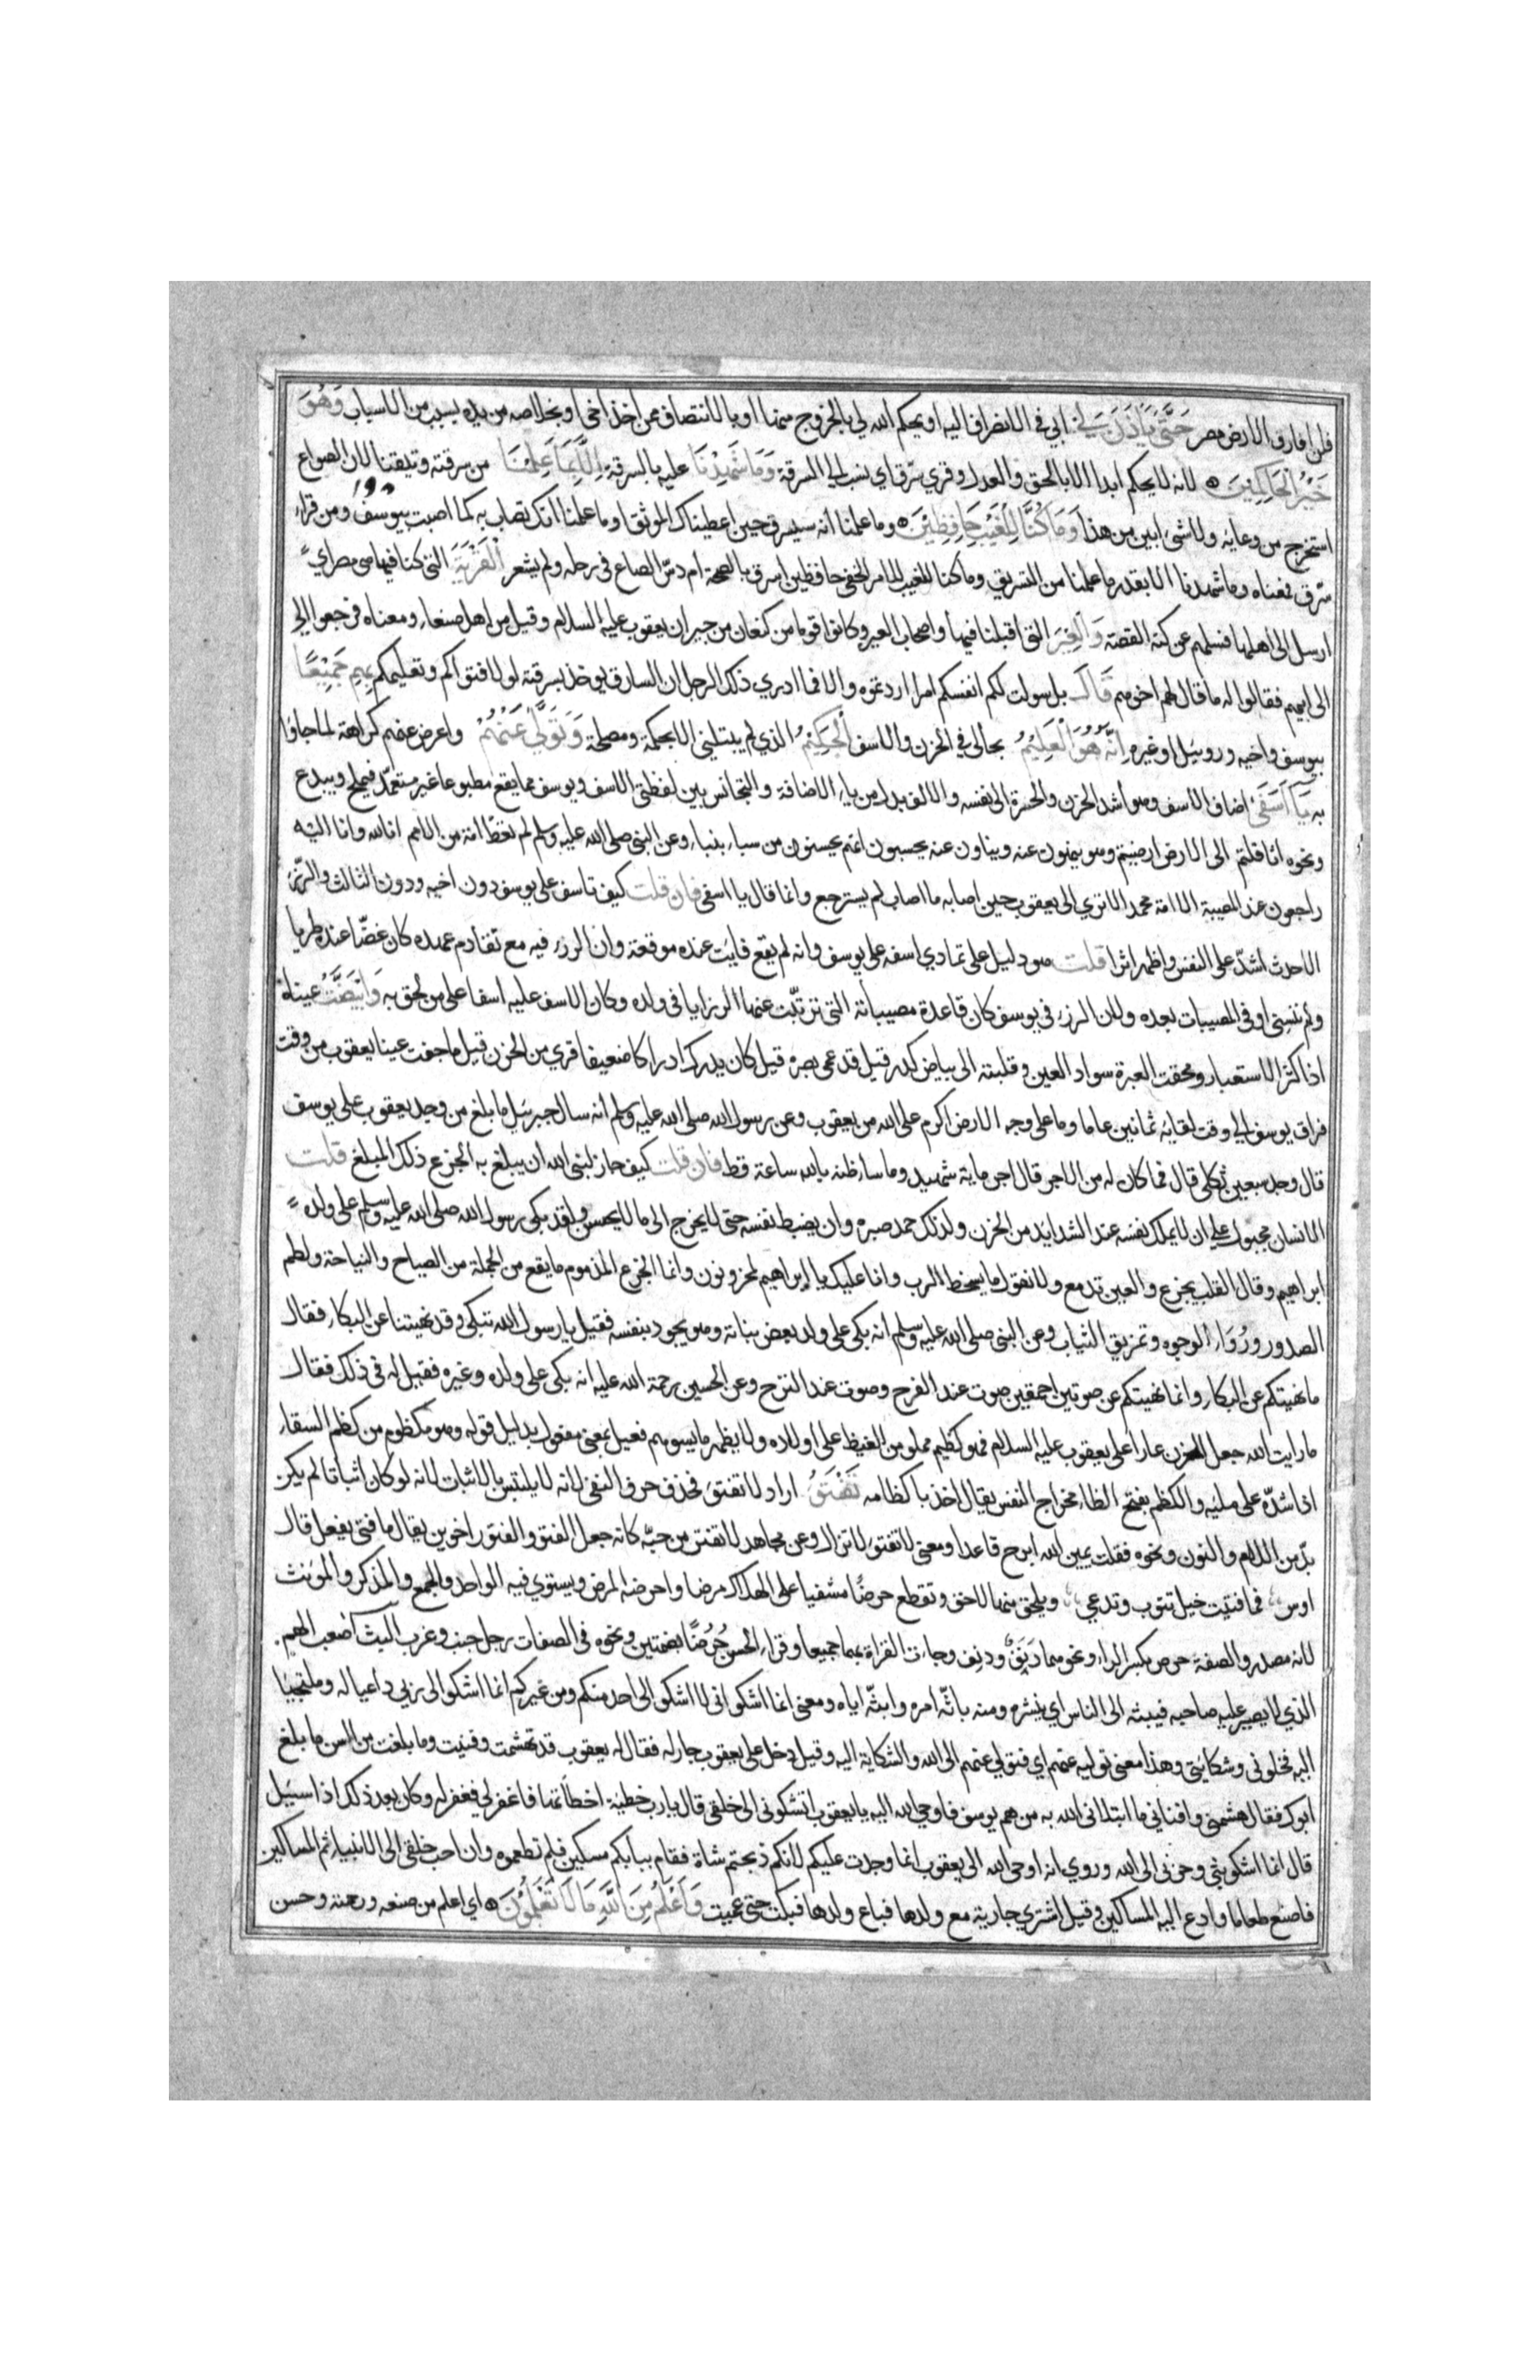 فلن افارق الارض مصر حَتَّى يَاْذَنَ لِي ابي في الانصراف اليه او يحكم الله لي بالخروج منها او بالانتصاف ممن اخذ اخي او بخلاصه من يده بسبب من الاسباب وَهُوَ
خَيْرُ الْحَاكِمِينَ لانه لا يحكم ابدا الا بالحق والعدل وقري سُرّق اي نسب الي السرقة وَمَا شَهِدْنَا عليه بالسرقة اِلَّا بِمَا عَلِمْنَا من سرقته وتيقنا لان الصواع
استخرج من وعائه ولا شئ ابين من هذا وَمَا كُنَّا لِلْغَيْبِ حَافِظِيْنَ وما علمنا انه سيسرق حين اعطيناك الموثق او ما علمنا انك تصاب به كما اصبت بيوسف ومن قراء
سُرّق فمعناه وما شهدنا الا بقدر ما علمنا من التسريق وما كنا للغيب للامر الخفي حافظين اسرق بالصحة ام دسّ الصاع في رحله ولم يشعر الْقَرْيَةَ التي كنا فيها هي مصر اي
ارسل الى اهلها فسلهم عن كنه القصة وَالْعِيْرَ التي اقبلنا فيها واصحاب العير وكانوا قوما من كنعان من جيران يعقوب عليه السلام وقيل من اهل صنعاء ومعناه فرجعوا الي
الى ابيهم فقالوا له ما قال لهم اخوهم قَالَ بل سولت لكم انفسكم امرا اردتموه والا فما ادري ذلك الرجل ان السارق يوخذ بسرقته لولا فتواكم وتعليمكم بِهِم جَمِيْعًا
بيوسف واخيه وروبيل او غيره اِنَّهُ هُوَ الْعَلِيْمُ بحالي في الحزن والاسف الْحَكِيْمُ الذي لم يبتليني الا بحكمة ومصلحة وَتَوَلَّى عَنْهُمْ واعرض عنهم كراهة لما جاؤا
به يَا اَسَفَى اضاف الاسف وهو اشد الحزن والحسرة الى نفسه والالف بدل من ياء الاضافة والتجانس بين لفظتي الاسف ويوسف مما يقع مطبوعا غير متعمّد فيملح ويبدع
ونحوه اثاقلتم الى الارض ارضيتم وهو ينهون عنه ويناون عنه يحسبون انهم يحسنون من سباء بنباء وعن النبي صلى الله عليه وسلم لم تعط امة من الامم انا لله وانا اليه
راجعون عند المصيبة الا امة محمد الا تري الى يعقوب حين اصابه ما اصاب لم يسترجع وانما قال يا اسفى فان قلت كيف تاسف على يوسف دون اخيه ودون الثالث والرزء
الاحدث اشدّ على النفس واظهر اثرا قلت هو دليل على تمادي اسفه على يوسف وانه لم يقع فايت عنده موقعه وان الرزء فيه مع تقادم عهده كان غضّا عنده طريا
ولم تنسني اوفى المصيبات بعده ولان الرزء في يوسف كان قاعدة مصيباته التي ترتبت عنها الرزايا في ولده وكان الاسف عليه اسفا على من لحق به وَابْيَضَّتْ عيناه
اذا كثر الاستعبار ومحقت العبرة سواد العين وقلبته الى بياض كدر قيل قد عمى بصره قيل كان يدرك ادراكا ضعيفا قري من الحزن قيل ما جفت عينا يعقوب من وقت
فراق يوسف الي وقت لقائه ثمانين عاما وما على وجه الارض اكرم على الله من يعقوب وعن رسول الله صلى الله عليه وسلم انه سال جبرييل ما بلغ من وجد يعقوب على يوسف
قال وجد سبعين ثكلى قال فما كان له من الاجر قال اجر ماية شهيد وما ساء ظنه بالله ساعة قط فان قلت كيف جاز لنبي الله ان يبلغ به الجزع ذلك المبلغ قلت
الانسان مجبول على ان لا يملك نفسه عند الشدايد من الحزن ولذلك حمد صبره وان يضبط نفسه حتى لا يخرج الى ما لا يحسن ولقد بكى رسول الله صلى الله عليه وسلم على ولده
ابراهيم وقال القلب يجزع والعين تدمع ولا نقول ما يسخط الرب وانا عليك يا ابراهيم لمحزونون وانما الجزع المذموم ما يقع من الجهلة من الصياح والنياحة ولطم
الصدور والوجوه وتمزيق الثياب وعن النبي صلى الله عليه وسلم انه بكى على ولد بعض بناته وهو يجود بنفسه فقيل يا رسول الله تبكي وقد نهيتنا عن البكاء فقال
ما نهيتكم عن البكاء وانما نهيتكم عن صوتين احمقين صوت عند الفرح وصوت عند الترح وعن الحسن رحمة الله عليه انه بكى على ولده وغيره فقيل له في ذلك فقال
ما رايت الله جعل الحزن عارا على يعقوب عليه السلام فهو كظيم مملو من الغيظ على اولاده ولا يظهر ما يسوهم فعيل بمعنى مفعول بدليل قوله وهو مكظوم من كظم السقاء
اذا شدّه على مليه والكظم بفتح الظاء مخراج النفس يقال اخذ باكظامه تَفْتَؤُ اراد لا تفتؤ فحذف حرف النفي لانه لا يلتبس بالاثبات لانه لو كان اثباتا لم يكن
بدّ من اللام والنون ونحوه فقلت يمين الله ابرح قاعدا ومعنى لا تفتؤ لا تزال وعن مجاهد لا تفتر من حبّه كانه جعل الفتو والفتور اخوين يقال ما فتئ يفعل قال
اوس فما فتيت خيل تثوب وتدعي ويلحق منها لاحق وتقطع حرضًا مشفيا على الهلاك مرضا واحرضه المرض ويستوي فيه الواحد والجمع والمذكر والمؤنث
لانه مصدر والصفة حرض بكسر الراء ونحوهما دَنَفٌ ودنِف وجاءت القراة بهما جميعا وقراء الحسن حُرُضًا بضمتين ونحوه في الصفات رجل جنب وغرب البث اصعب الهم
الذي لا يصبر عليه صاحبه فيبثه الى الناس اي ينشره ومنه باثّه امره وابثّه اياه ومعنى انما اشكو اني لا اشكو الى احد منكم ومن غيركم انما اشكو الى ربي داعيا له وملتجيا
اليه فخلوني وشكايتي وهذا معنى توليه عنهم اي فتولي عنهم الى الله والشكاية اليه وقيل دخل على يعقوب جار له فقال له يعقوب قد تهشمت وفنيت وما بلغت من السن ما بلغ
ابوك فقال هشمني وافناني ما ابتلاني الله به من هم يوسف فاوحي الله اليه يا يعقوب اتشكوني الى خلقي قال يا رب خطيئة اخطأتها فاغفر لي فغفر له وكان بعد ذلك اذا سئيل
قال انما اشكو بثي وحزني الى الله وروي انه اوحى الله الى يعقوب انما وجدت عليكم لانكم ذبحتم شاة فقام ببابكم مسكين فلم تطعموه وان احب خلقي الى الانبياء ثم المساكين
فاصنع طعاما وادع اليه المساكين وقيل اشتري جارية مع ولدها فباع ولدها فبكت حتى عميت وَاَعْلَمُ مِنَ اللّٰهِ مَا لَا تَعْلَمُوْنَ اي اعلم من صنعه ورحمته وحسن